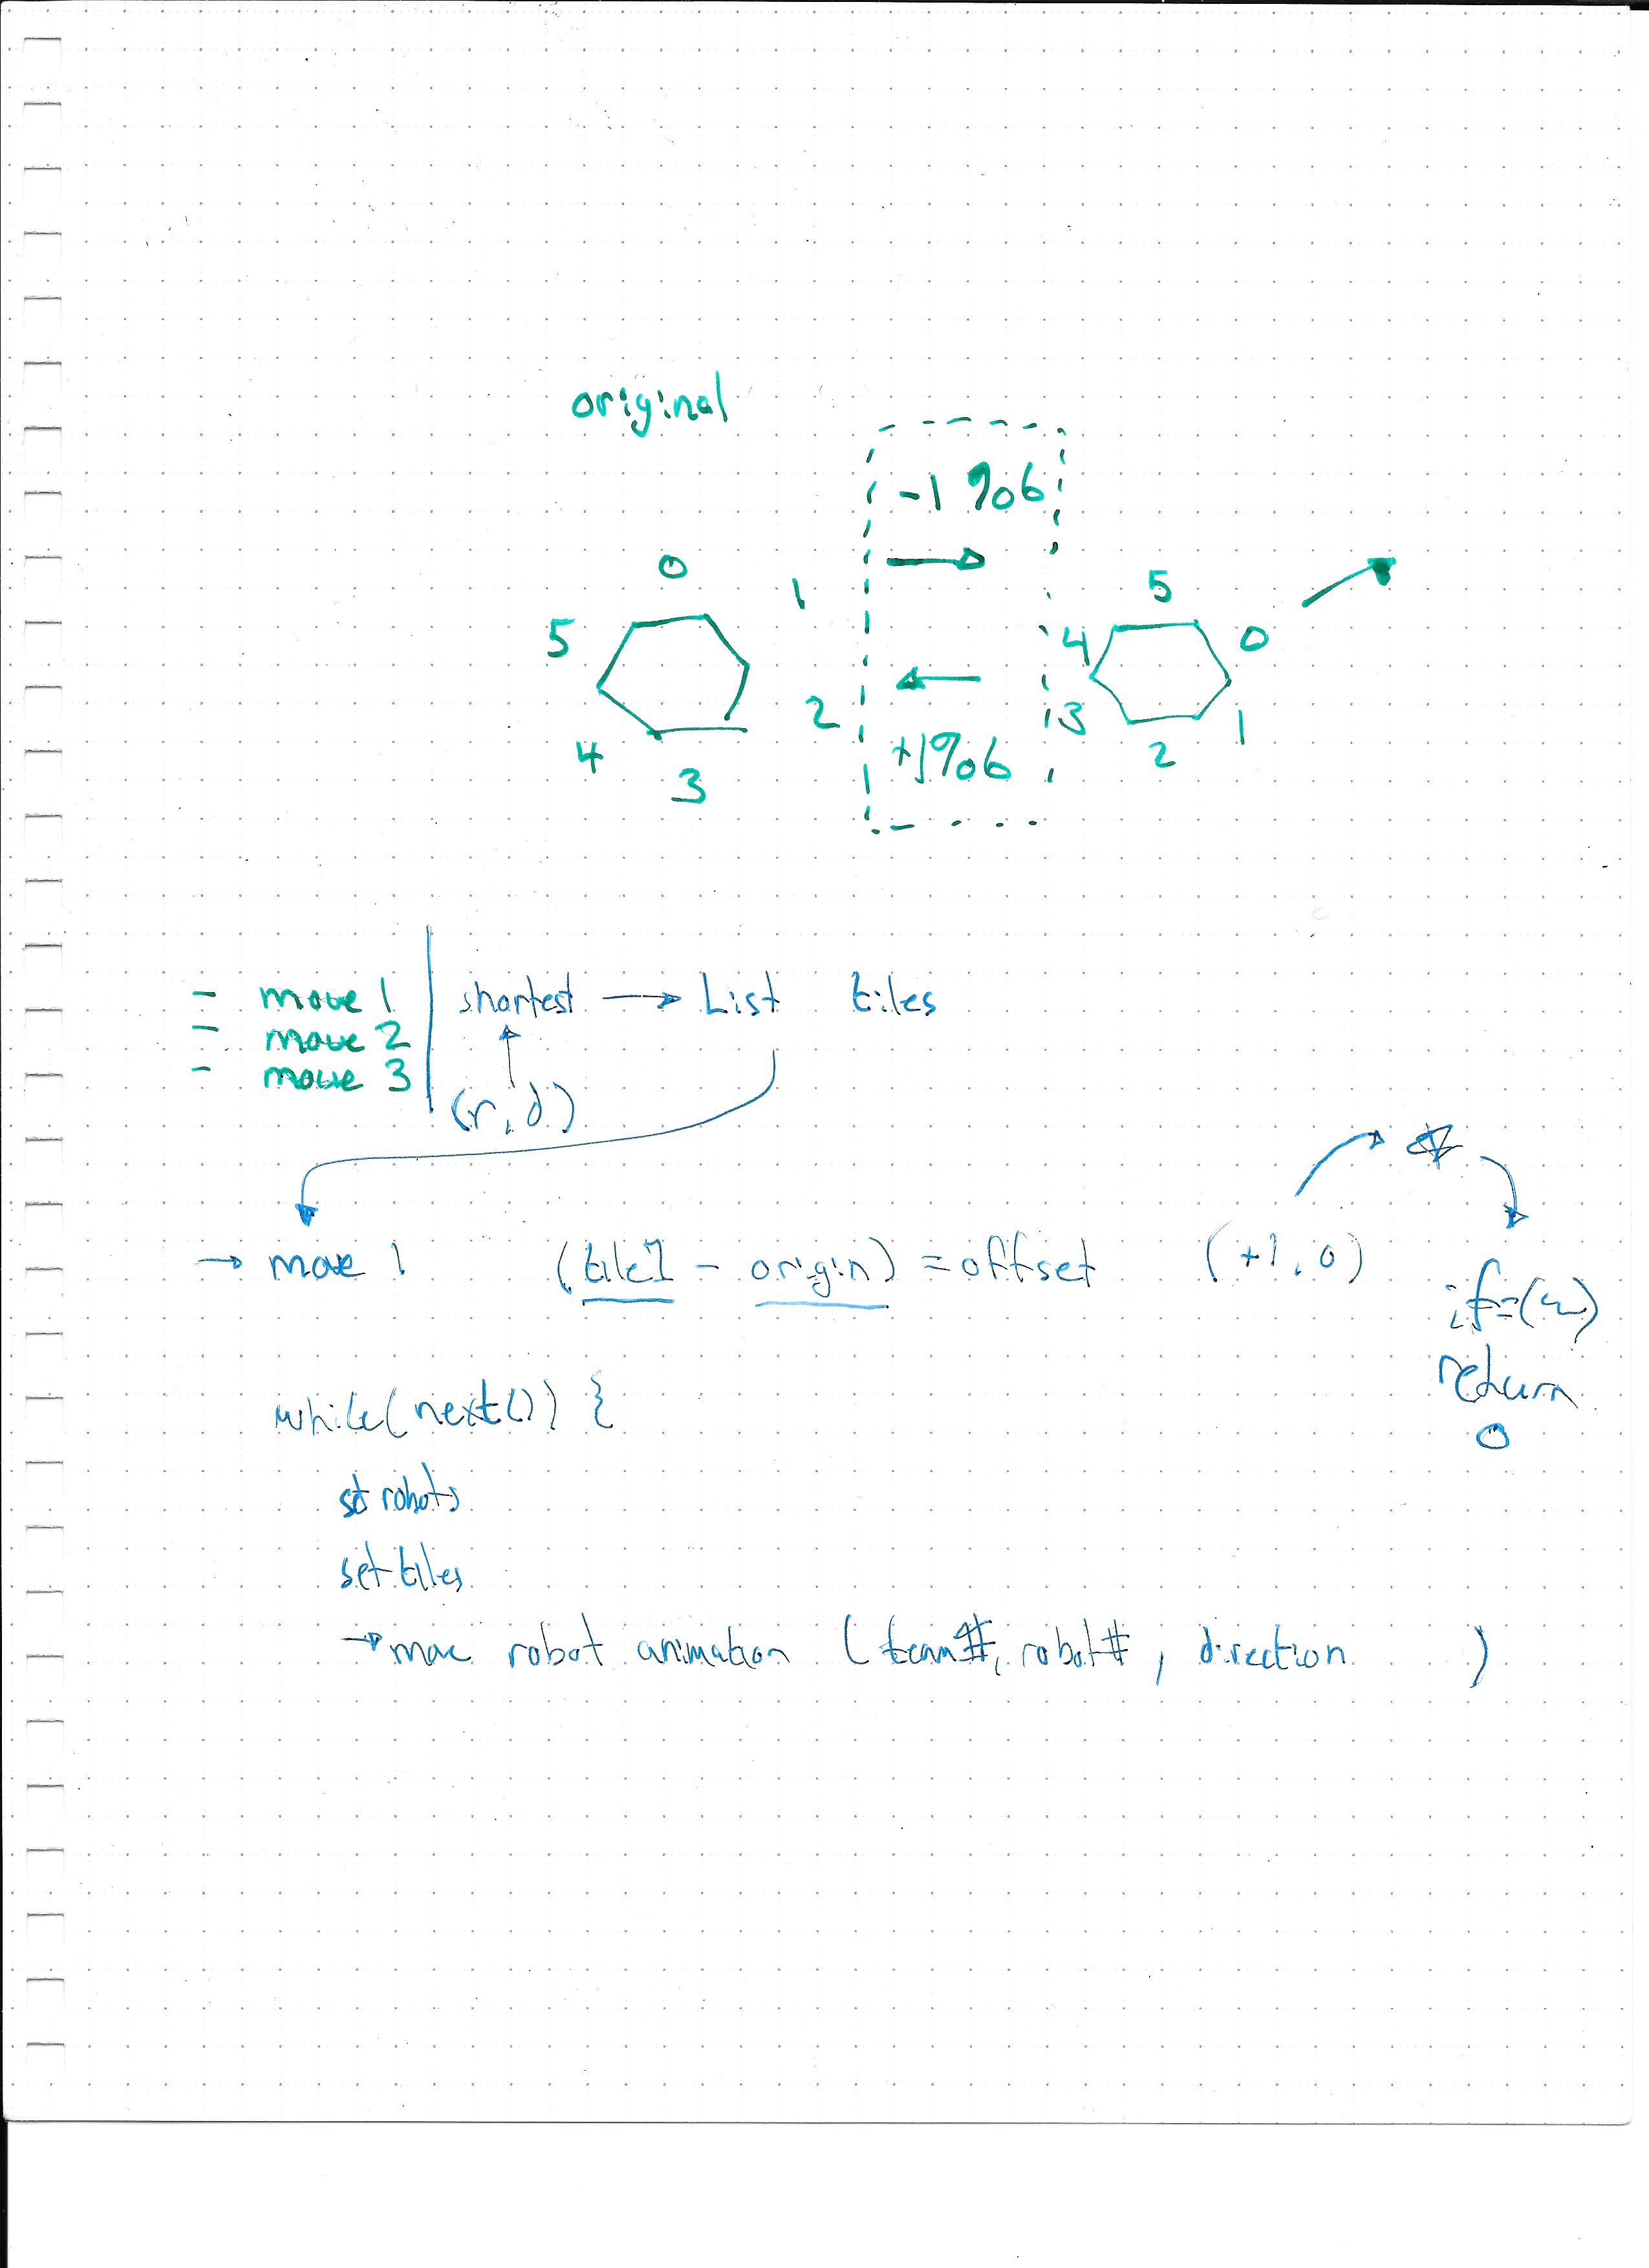 original
-1 %6
0
1
5
5
4
0
2
3
1
4
3
2
+1%6
- move 1
- move 2
- move 3
shortest → List tiles
(r, d)
→ move 1 (tile1 - origin) = offset (+1, 0)
return
0
while(next()) {
set robots
set tiles
→ move robot animation (team#, robot#, direction )